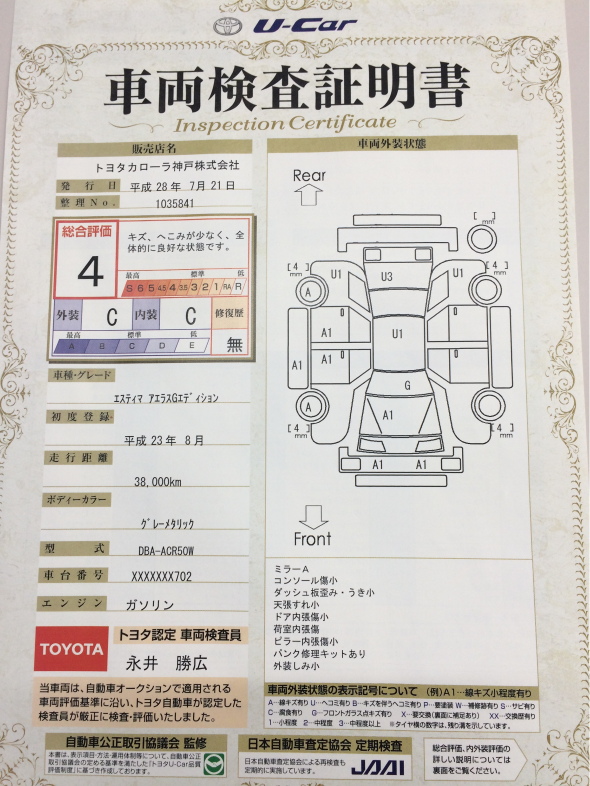 U-Car
車両検査証明書
Inspection Certificate
販売店名
トヨタカローラ神戸株式会社
発行日 平成 28 年 7 月 21 日
整理No. 1035841
総合評価
4
キズ、へこみが少なく、全
体的に良好な状態です。
最高 標準 低
S 6 5 4.5 4 3.5 3 2 1 RA R
外装 C 内装 C 修復歴
最高 標準 低
A B C D E
無
車種・グレード
エスティマ アエラスGエディション
初度登録
平成 23 年 8 月
走行距離
38,000km
ボディーカラー
グレーメタリック
型式 DBA-ACR50W
車台番号 XXXXXXX702
エンジン ガソリン
TOYOTA
トヨタ認定 車両検査員
永井 勝広
当車両は、自動車オークションで適用される
車両評価基準に沿い、トヨタ自動車が認定した
検査員が厳正に検査・評価いたしました。
車両外装状態
Rear
[ ]
mm
[ 4 ]
mm
U1
U3
U1
[ 4 ]
mm
A
A1
U1
A1
A1
G
A
A1
[ 4 ]
mm
[ 4 ]
mm
A1 A1 A1
Front
ミラーA
コンソール傷小
ダッシュ板歪み・うき小
天張すれ小
ドア内張傷小
荷室内張傷
ピラー内張傷小
パンク修理キットあり
外装しみ小
車両外装状態の表示記号について (例)A1…線キズ小程度有り
A…線キズ有り U…ヘコミ有り B…キズを伴うヘコミ有り P…要塗装 W…補修跡有り S…サビ有り
C…腐食有り G…フロントガラス点キズ有り X…要交換(裏面に補足あり) XX…交換歴有り
1…小程度 2…中程度 3…中程度以上 ※タイヤ横の数字は、残り溝を示しています。
自動車公正取引協議会 監修
本書は、表示項目・方法・運用体制等について、自動車公正
取引協議会の定める基準を満たした「トヨタU-Car品質
評価制度」に基づき作成しております。
日本自動車査定協会 定期検査
日本自動車査定協会による再検査も
定期的に実施しています。
JAAI
総合評価、内外装評価の
詳しい説明については
裏面をご覧ください。